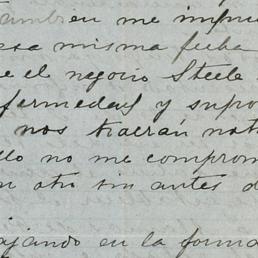 también me impu
esa misma fecha
e el negocio Steele
fermedad y supo
nos traerán not
llo no me comprom
n otro sin antes d
ajando en la forma